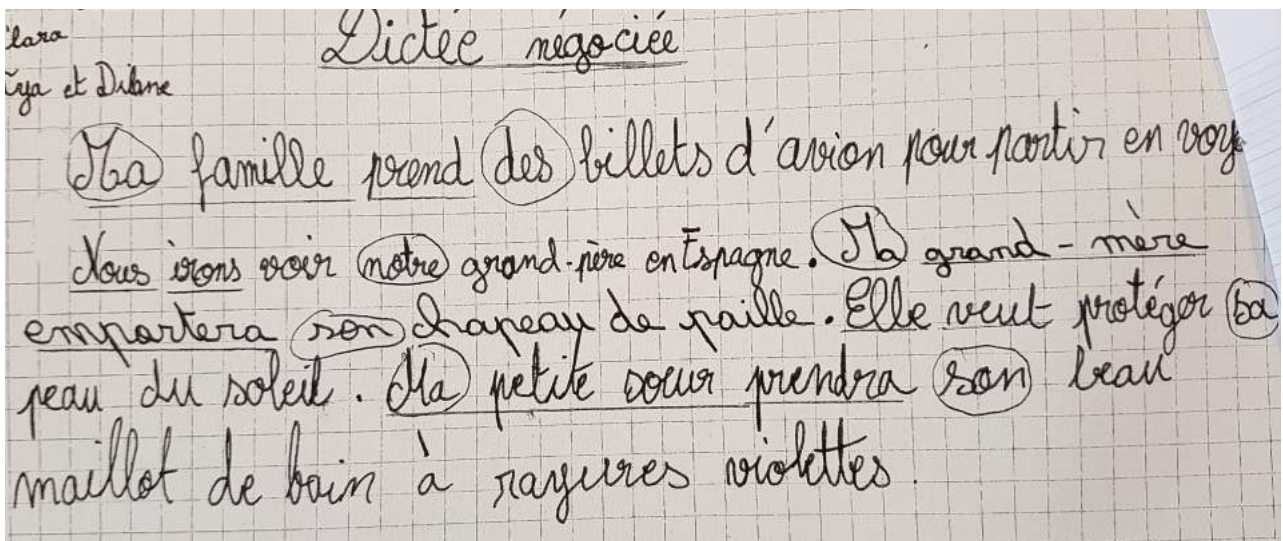 Dictée négociée
et Dilane
Ma famille prend des billets d'avion pour partir en voy
Nous irons voir notre grand-père en Espagne. Ma grand-mère
emportera son chapeau de paille. Elle veut protéger sa
peau du soleil. Ma petite soeur prendra son beau
maillot de bain à rayures violettes.